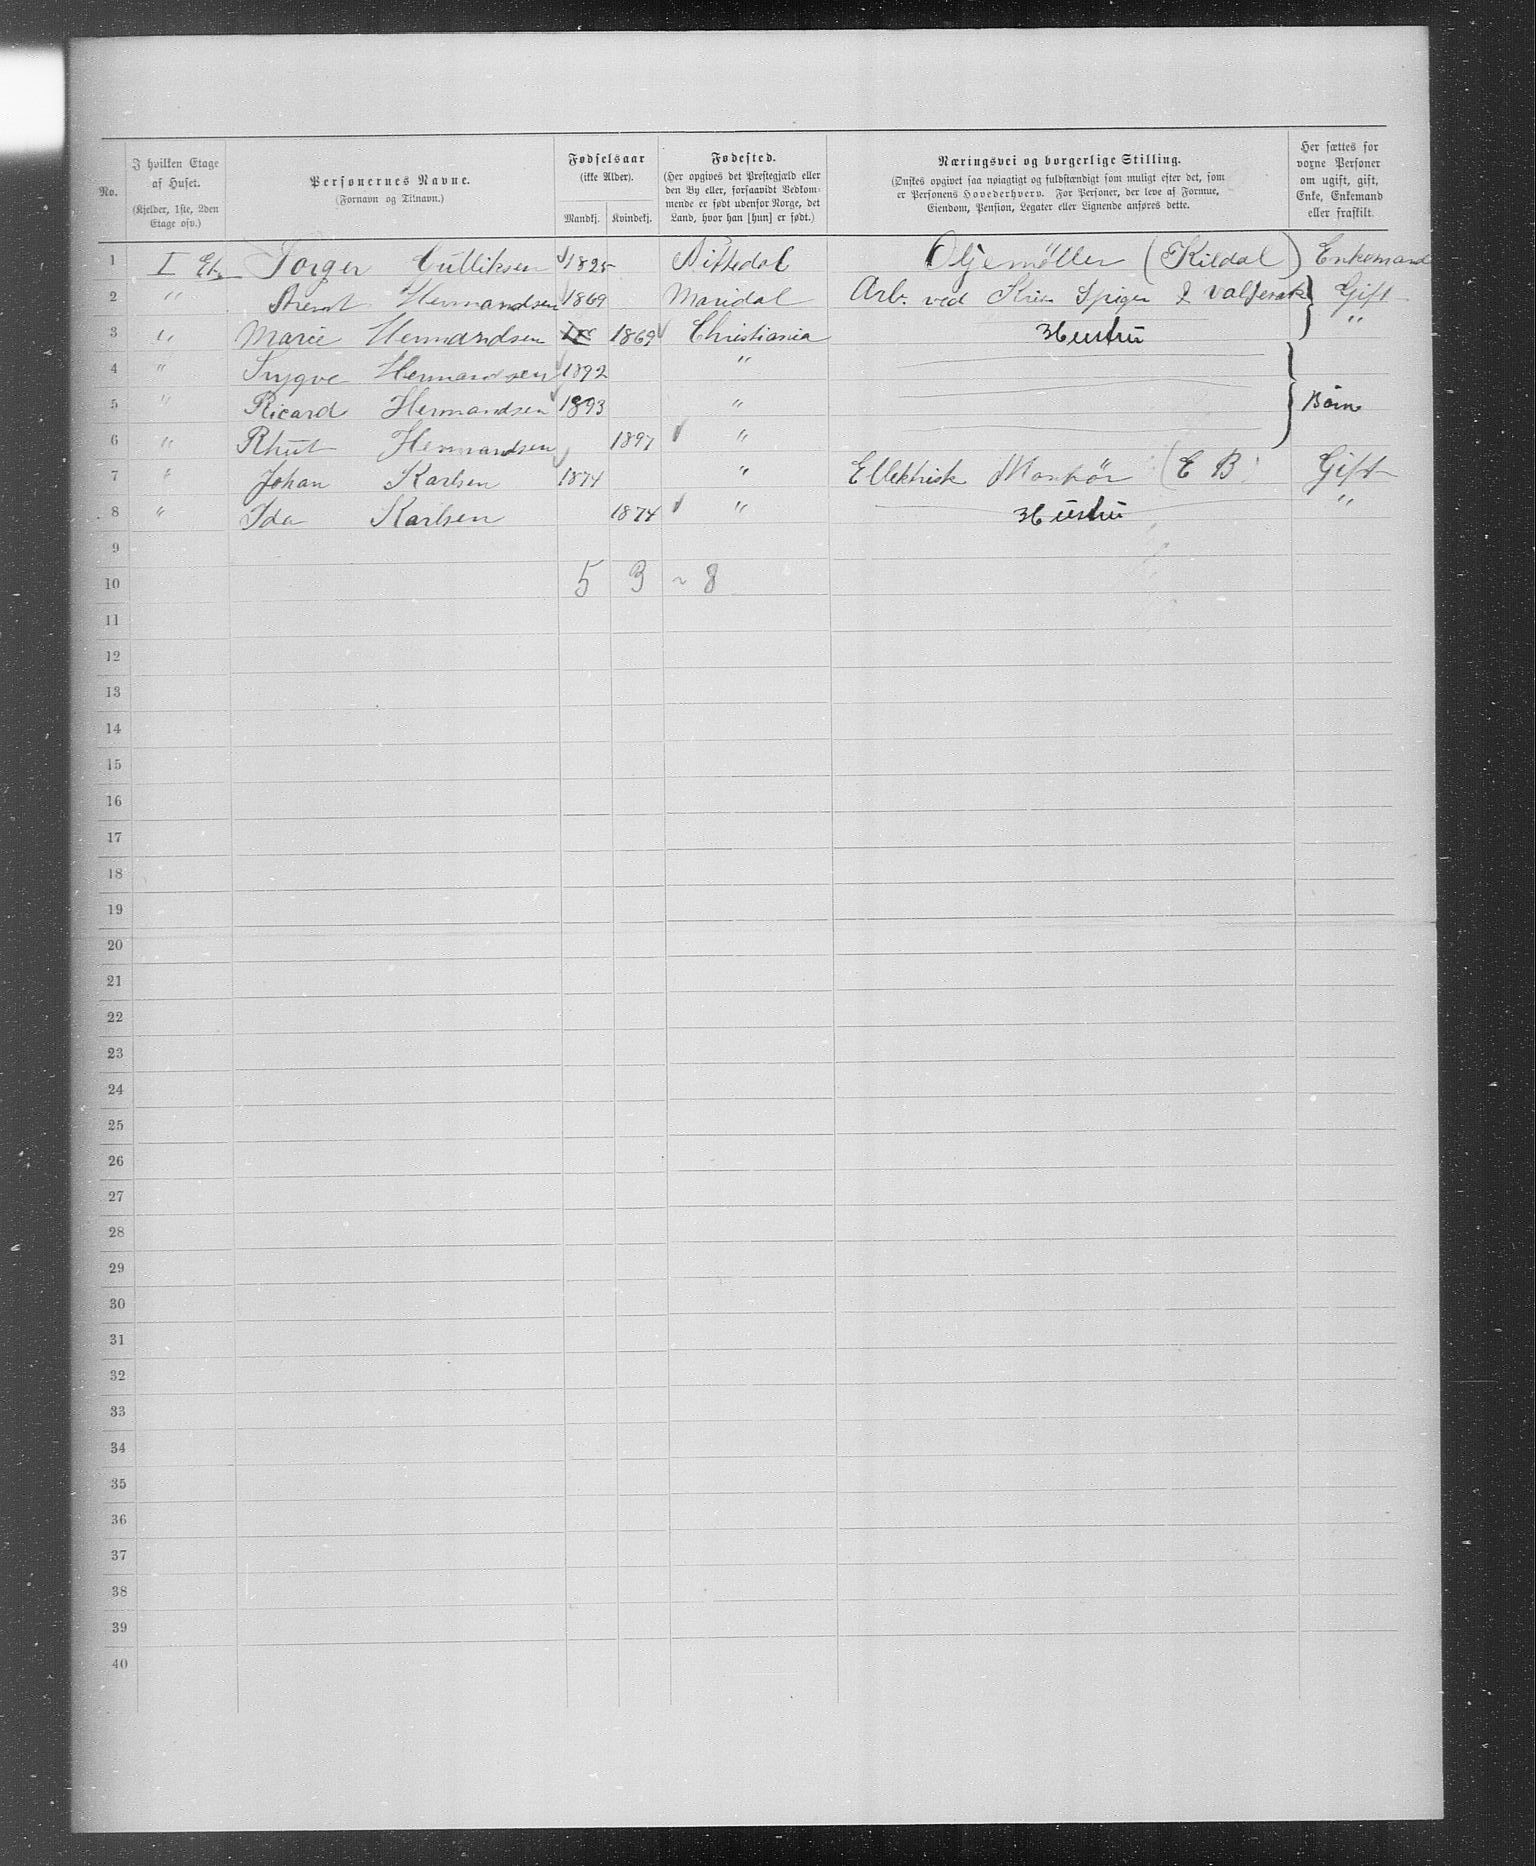 No.
I hvilken Etage
af Huset.
(Kjelder, 1ste, 2den
Etage osv.)
Personernes Navne.
(Fornavn og Tilnavn.)
Fødselsaar
(ikke Alder).
Mandkj. Kvindekj.
Fødested.
(Her opgives det Prestegjæld eller
den By eller, forsaavidt Vedkom-
mende er født udenfor Norge, det
Land, hvor han [hun] er født.)
Næringsvei og borgerlige Stilling.
(Ønskes opgivet saa nøiagtigt og fuldstændigt som muligt efter det, som
er Personens Hovederhverv. For Personer, der leve af Formue,
Eiendom, Pension, Legater eller Lignende anføres dette.
Her sættes for
voxne Personer
om ugift, gift,
Enke, Enkemand
eller fraskilt.
1 I Et. Torger Gulliksen 1825 Nittedal Oljemøller (Kildal) Enkemand
2 " Arent Hermandsen 1869 Maridal Arb. ved Kria Spiger & Valseværk Gift
3 " Marie Hermandsen 1869 Christiania Hustru "
4 " Trygve Hermandsen 1892 "
5 " Ricard Hermandsen 1893 " Børn
6 " Rhut Hermandsen 1897 "
7 " Johan Karlsen 1874 " Ellektrisk Montør (E B) Gift
8 " Ida Karlsen 1874 " Hustru "
9
10 5 3 ~ 8
11
12
13
14
15
16
17
18
19
20
21
22
23
24
25
26
27
28
29
30
31
32
33
34
35
36
37
38
39
40